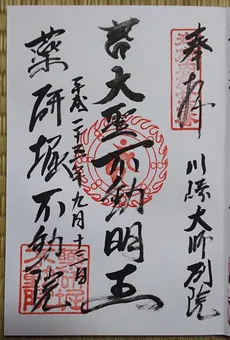 奉拝
川崎大師別院
大聖不動明王
平成二十六年九月十二日
薬研堀不動院